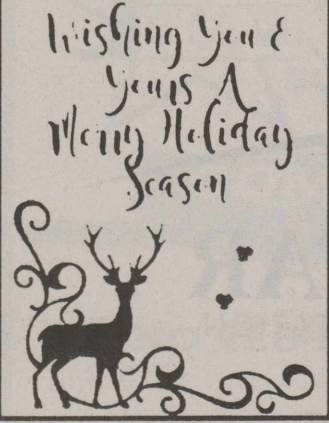 Wishing You &
Yours A
Merry Holiday
Season